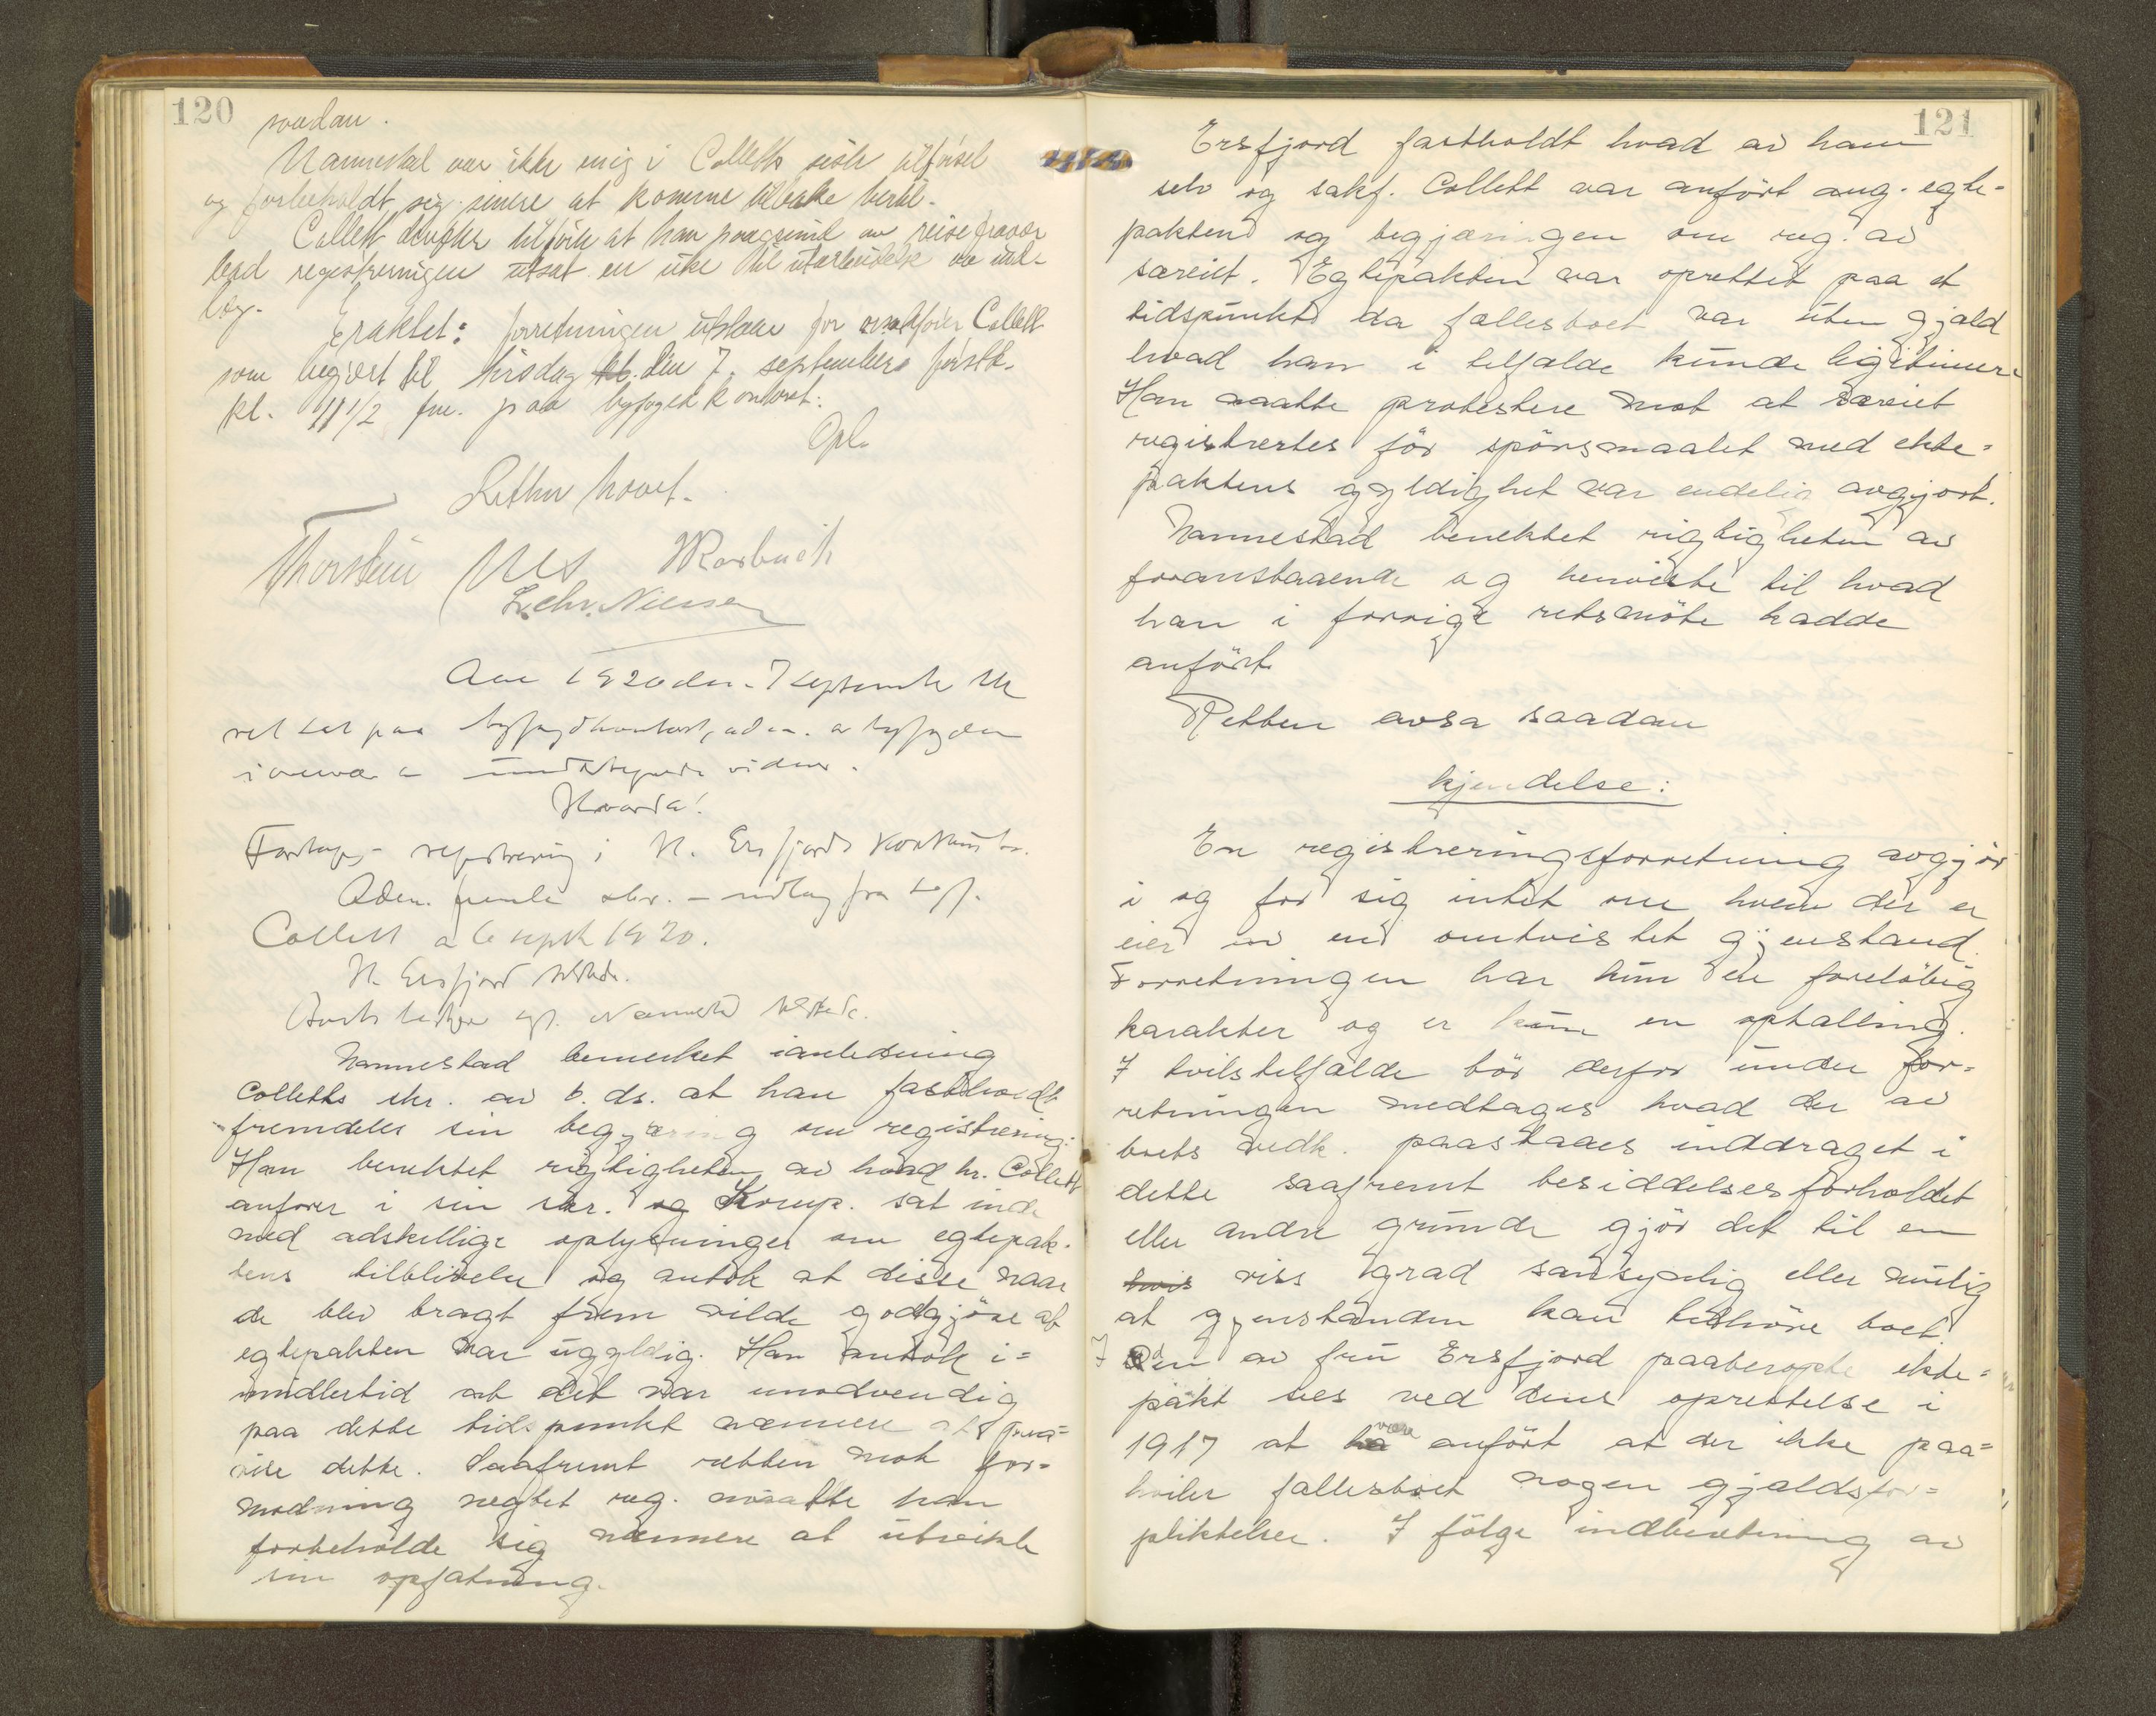 120
saadan.
Nannestad var ikke enig i Colletts siste tilförsel
og forbeholdt sig senere at komme tilbake hertil.
Collett tilförte at han paagrund av reisefravær
bad registreringen utsat en uke til utarbeidelse av ind-
læg.
Eraktet: forretningen utstaar for Collett
som begjært til tirsdag kl. den 7. september förstk.
kl. 11 1/2 fm. paa byfogedkontoret.
Opl.
hævet.
Thorstein Nes
L. Chr. Nielsen
Aar 1920 den 7 september ble
ret sat paa byfogdkontoret, adm. av byfogden
i overvær av undertegnede vidner.
Hvorda!
Fortsat registrering i H. Ersfjords konkursbo.
Adm. fremla skr. – indlæg fra sakf.
Collett av 6 septbr 1920.
H. Ersfjord tilstede.
Boets bestyrer sakf. Nannestad tilstede.
Nannestad bemerket i anledning
Colletts skr. av 6. ds. at han fastholdt
fremdeles sin begjæring om registrering.
Han benektet rigtigheten av hvad hr. Collett
anfører i sin skr. og Komp. sat inde
med adskillige oplysninger om egtepak-
tens tilblivelse og antok at disse naar
de blev bragt frem vilde godtgjöre at
egtepakten var ugyldig. Han antok i=
midlertid at det var unødvendig
paa dette tidspunkt nærmere at paa=
vise dette. Saafremt retten mot for=
modning negtet reg. maatte han
forbeholde sig nærmere at utvikle
sin opfatning.
121
Ersfjord fastholdt hvad av ham
selv og sakf. Collett var anført ang. egte=
pakten og begjæringen om reg. av
særeiet. Egtepakten var oprettet paa et
tidspunkt da fællesboet var uten gjæld
hvad han i tilfælde kunde legitimere
Han maatte protestere mot at særeiet
registrertes för spörsmaalet med ekte=
paktens gyldighet var endelig avgjort.
Nannestad benektet rigtigheten av
foranstaaende og henviste til hvad
han i forrige retsmöte hadde
anfört.
Retten avsa saadan
kjendelse:
En registreringsforretning avgjör
i og for sig intet om hvem der er
eier av en omtvistet gjenstand.
Forretningen har kun en foreløbig
karakter og er kun en optælling.
I tvilstilfælde bör derfor under for=
retningen medtages hvad der av
boets vedk. paastaaes inddraget i
dette saafremt besiddelsesforholdet
eller andre grunde gjör det til en
hvis viss grad sansynlig eller mulig
at gjenstanden kan tilhöre boet.
I den av fru Ersfjord paaberopte ekte=
pakt sies ved dens oprettelse i
1917 at ha være anfört at der ikke paa=
hviler fællesboet nogen gjældsfor=
pliktelser. I fölge indberetning av